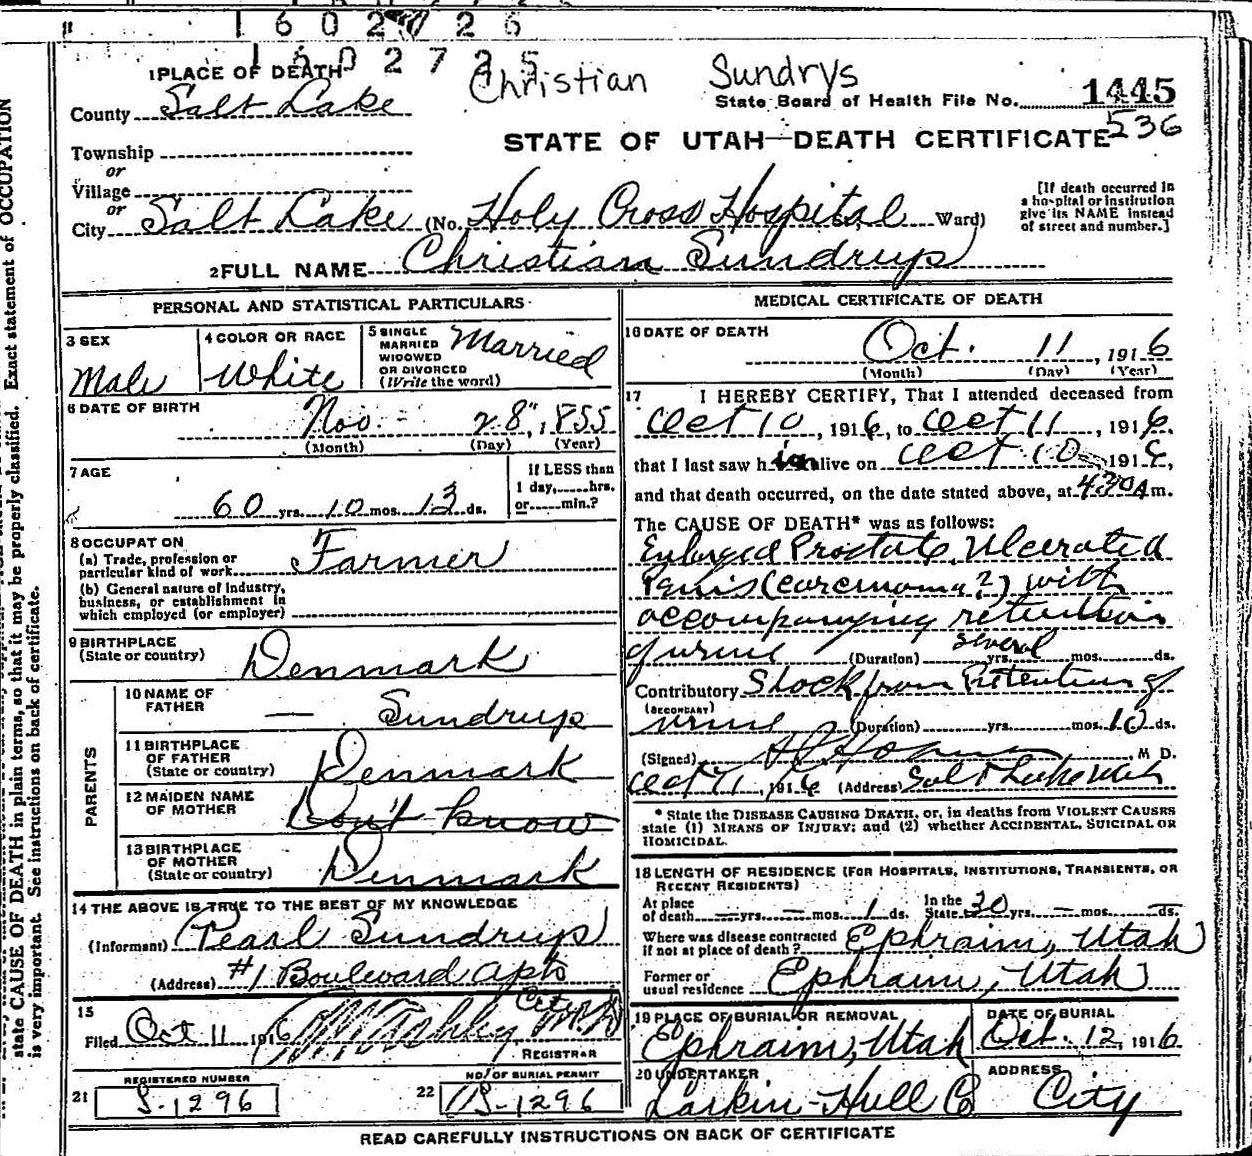 1602726
1602725
Christian Sundrys
1 PLACE OF DEATH
County Salt Lake
State Board of Health File No. 1445
536
STATE OF UTAH—DEATH CERTIFICATE
Township
or
Village
or
City Salt Lake (No. Holy Cross Hospital, Ward)
[If death occurred in
a hospital or institution
give its NAME instead
of street and number.]
2 FULL NAME Christian Sundrup
PERSONAL AND STATISTICAL PARTICULARS
3 SEX
Male
4 COLOR OR RACE
White
5 SINGLE
MARRIED
WIDOWED
OR DIVORCED
(Write the word)
Married
6 DATE OF BIRTH
Nov. 28", 1855
(Month) (Day) (Year)
7 AGE
60 yrs. 10 mos. 13 ds.
If LESS than
1 day, hrs.
or min.?
8 OCCUPAT ON
(a) Trade, profession or
particular kind of work Farmer
(b) General nature of industry,
business, or establishment in
which employed (or employer)
9 BIRTHPLACE
(State or country) Denmark
PARENTS
10 NAME OF
FATHER — Sundrup
11 BIRTHPLACE
OF FATHER
(State or country) Denmark
12 MAIDEN NAME
OF MOTHER Don't know
13 BIRTHPLACE
OF MOTHER
(State or country) Denmark
14 THE ABOVE IS TRUE TO THE BEST OF MY KNOWLEDGE
(Informant) Pearl Sundrup
(Address) #1 Boulevard Apts
City
15
Filed Oct 11 1916
REGISTRAR
REGISTERED NUMBER
21 S-1296
NO. OF BURIAL PERMIT
22 S-1296
MEDICAL CERTIFICATE OF DEATH
16 DATE OF DEATH
Oct. 11, 1916
(Month) (Day) (Year)
17 I HEREBY CERTIFY, That I attended deceased from
Oct 10, 1916, to Oct 11, 1916,
that I last saw him alive on Oct 10, 1916,
and that death occurred, on the date stated above, at 430A m.
The CAUSE OF DEATH* was as follows:
Enlarged Prostate, Ulcerated
Penis (carcinoma?) with
accompanying retention
of urine (Duration) several yrs. mos. ds.
Contributory Shock from Retention of
(SECONDARY)
urine (Duration) yrs. mos. 10 ds.
(Signed) M D.
Oct 11, 1916 (Address) Salt Lake Utah
* State the DISEASE CAUSING DEATH, or, in deaths from VIOLENT CAUSES
state (1) MEANS OF INJURY; and (2) whether ACCIDENTAL, SUICIDAL OR
HOMICIDAL.
18 LENGTH OF RESIDENCE (FOR HOSPITALS, INSTITUTIONS, TRANSIENTS, OR
RECENT RESIDENTS)
At place
of death — yrs. — mos. 1 ds.
In the
State 30 yrs. — mos. — ds.
Where was disease contracted
if not at place of death? Ephraim, Utah
Former or
usual residence Ephraim, Utah
19 PLACE OF BURIAL OR REMOVAL
Ephraim, Utah
DATE OF BURIAL
Oct. 12, 1916
20 UNDERTAKER
Larkin-Hull Co
ADDRESS
City
READ CAREFULLY INSTRUCTIONS ON BACK OF CERTIFICATE
Exact statement of OCCUPATION
state CAUSE OF DEATH in plain terms, so that it may be properly classified.
is very important. See instructions on back of certificate.